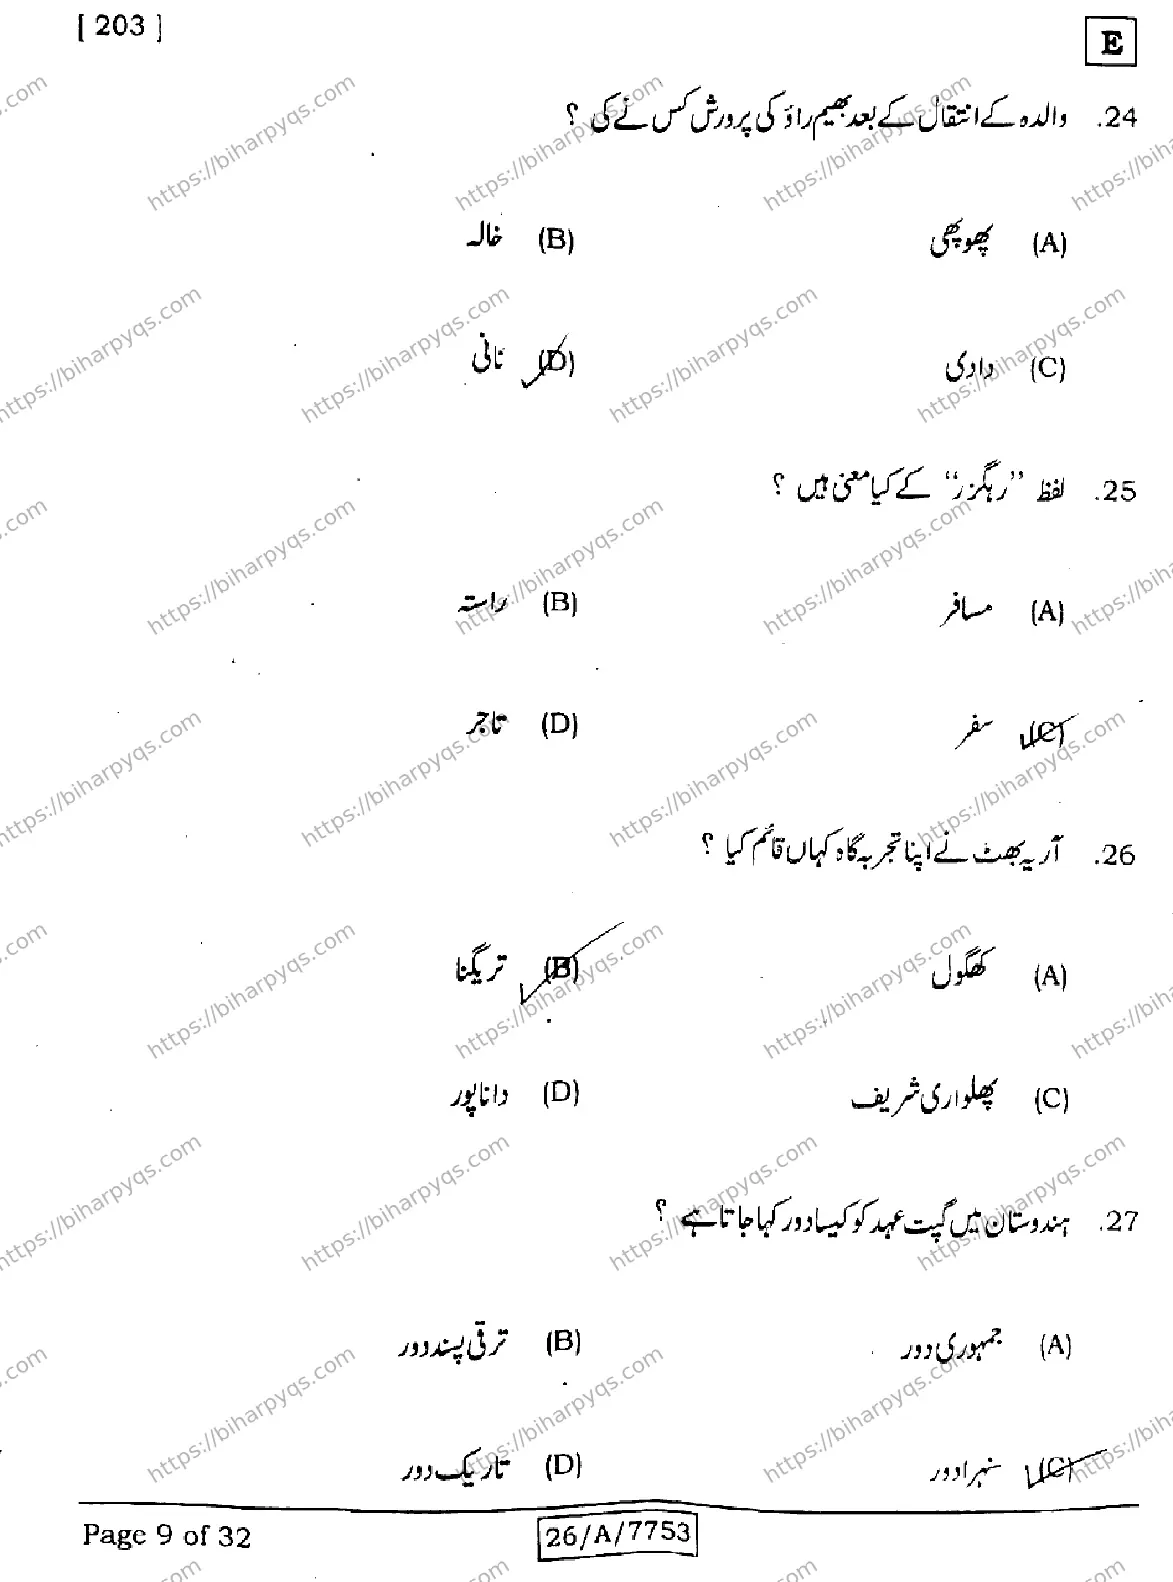 [ 203 ]
E
24. والدہ کے انتقال کے بعد بھیم راؤ کی پرورش کس نے کی ؟
(A) پھوپھی (B) خالہ
(C) دادی (D) نانی
25. لفظ ”رہگزر“ کے کیا معنی ہیں ؟
(A) مسافر (B) راستہ
(C) سفر (D) تاجر
26. آریہ بھٹ نے اپنا تجربہ گاہ کہاں قائم کیا ؟
(A) کھگول (B) تریگنا
(C) پھلواری شریف (D) داناپور
27. ہندوستان میں گپت عہد کو کیسا دور کہا جاتا ہے ؟
(A) جمہوری دور (B) ترقی پسند دور
(C) سنہرا دور (D) تاریک دور
Page 9 of 32
26/A/7753
https://biharpyqs.com